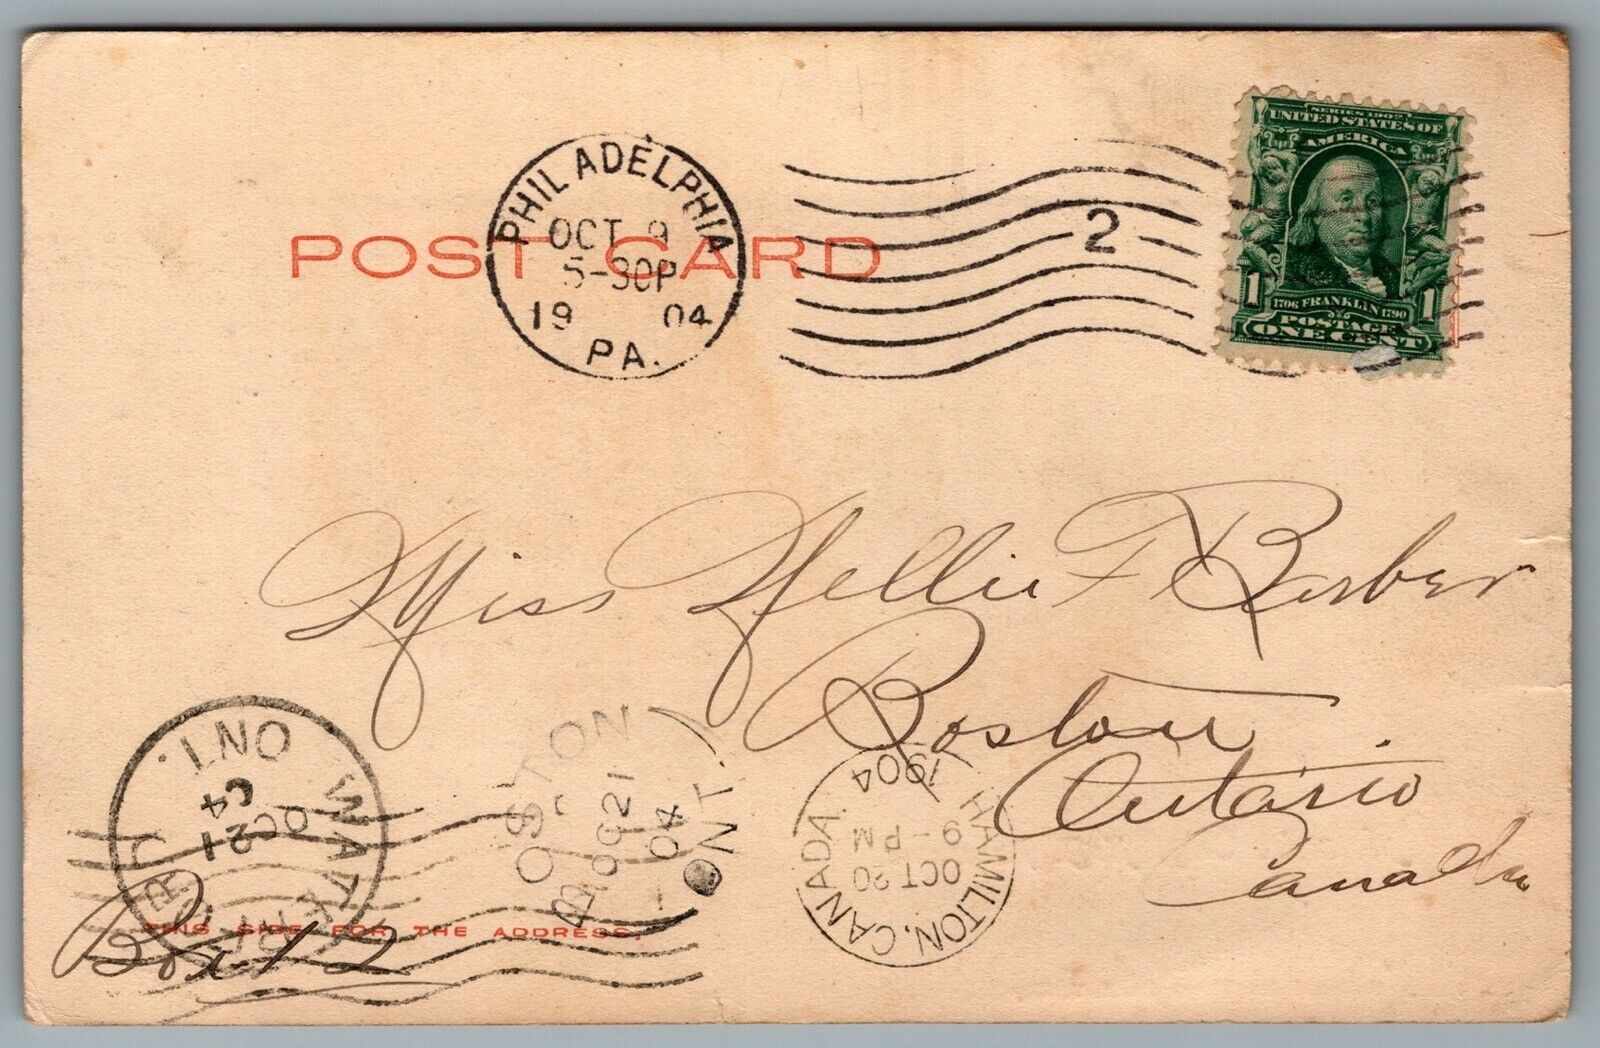 POST CARD
PHILADELPHIA
OCT 9
5-30P
19 04
PA.
2
SERIES 1902
UNITED STATES OF
AMERICA
1 1
1706 FRANKLIN 1790
POSTAGE
ONE CENT
Miss Nellie F Barber
Boston
Ontario
Canada
Box 12
THIS SIDE FOR THE ADDRESS.
WATERFORD ONT.
OC 21
04
BOSTON
OC 21
04
ONT
HAMILTON, CANADA.
9-PM
OCT 20
1904